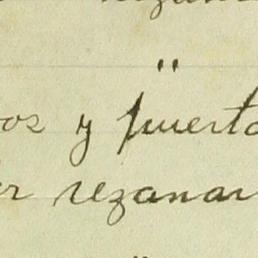 os y puerto
er rezanar